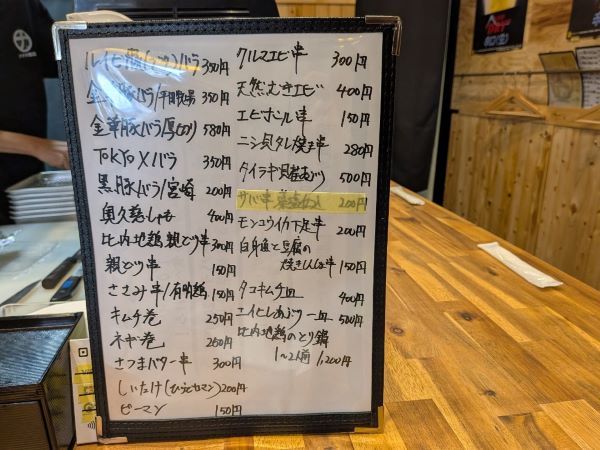 ルイビ豚(しそ)バラ 350円
金華豚バラ/平田牧場 350円
金華豚バラ厚切り 580円
TOKYO Xバラ 350円
黒豚バラ/宮崎 200円
奥久慈しゃも 400円
比内地鶏 親どり串 300円
親どり串 150円
ささみ串/有明鶏 150円
キムチ巻 250円
ネギ巻 250円
さつまバター串 300円
しいたけ 200円
ピーマン 150円
クルマエビ串 300円
天然むきエビ 400円
エビボール串 150円
ニシ貝タレ焼き串 280円
タイラギ貝岩あぶり 500円
サバ串 200円
モンゴウイカ下足串 200円
白身魚と豆腐の
焼きしんじょ串 150円
タコキムチ皿 400円
エイヒレあぶり一皿 500円
比内地鶏のとり鍋
1〜2人前 1,200円